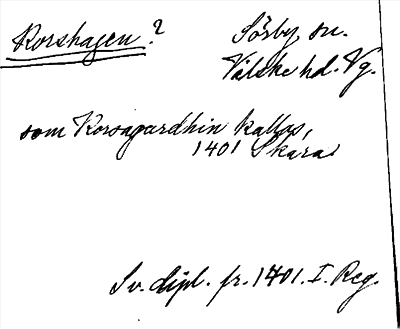 Korshagen?
Sörby sn.
Valske hd. Vg.
som Korsagardhin kallas,
1401 Skara
Sv. dipl. fr. 1401. I. Reg.